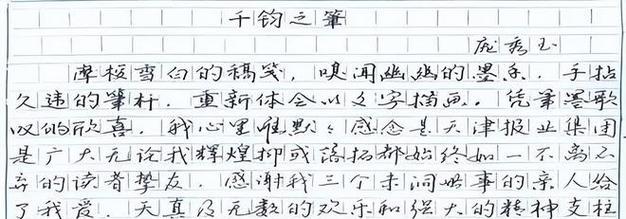 千钧之筆
庞秀玉
摩挲雪白的稿笺，嗅闻幽幽的墨香，手拈
久违的筆杆，重新体会以文字描画，凭筆墨歌
叹的欣喜，我心里唯默：感念是天津报业集团
是广大无论我辉煌抑或落拓都始终如一不离不
弃的读者挚友，感谢我三个未谙世事的亲人给
了我爱、天真及无数的欢乐和强大的精神支柱